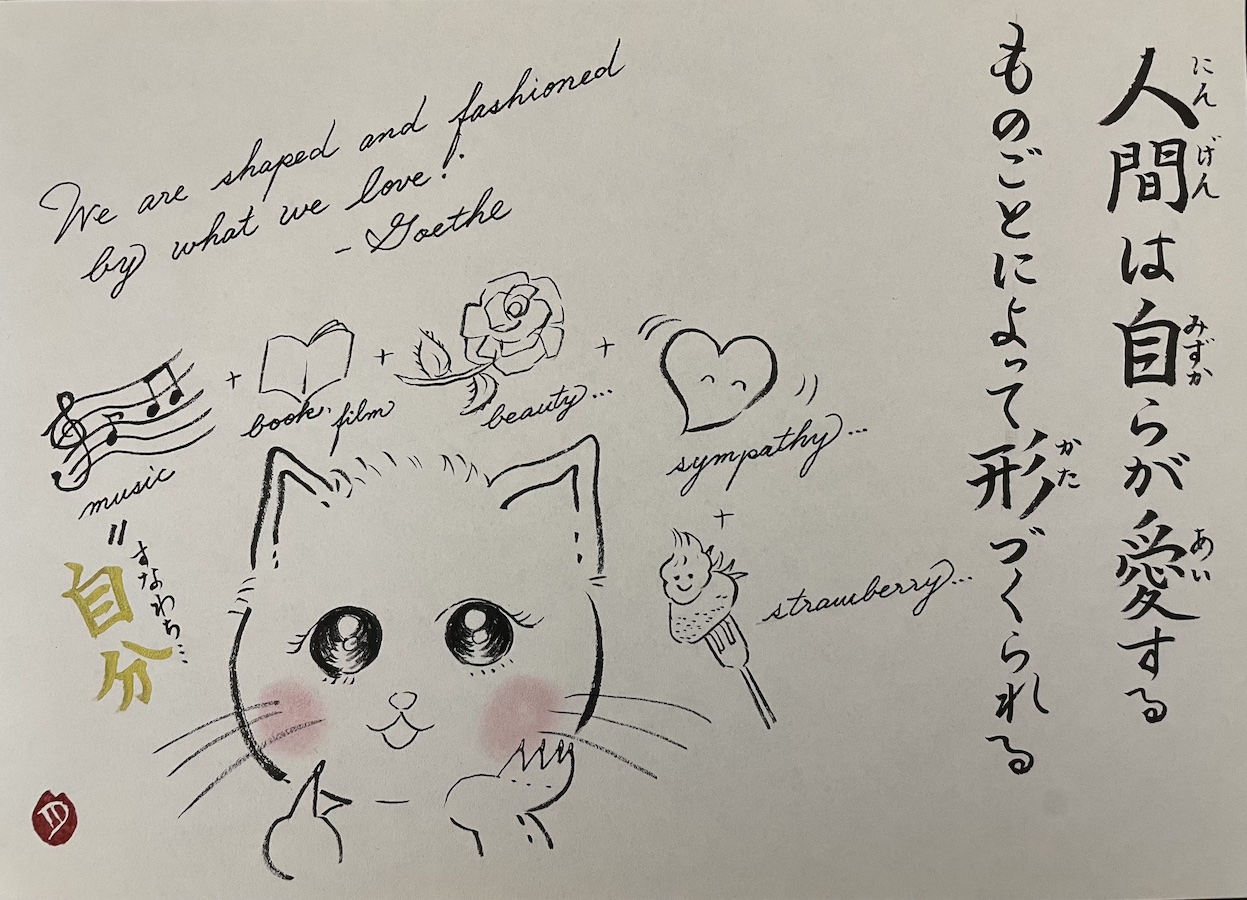 人間は自らが愛する
にんげん
みずか
あい
ものごとによって形づくられる
かた
We are shaped and fashioned
by what we love!
- Goethe
music
+
book, film
+
beauty...
+
sympathy...
+
strawberry...
=
すなわち...
自分